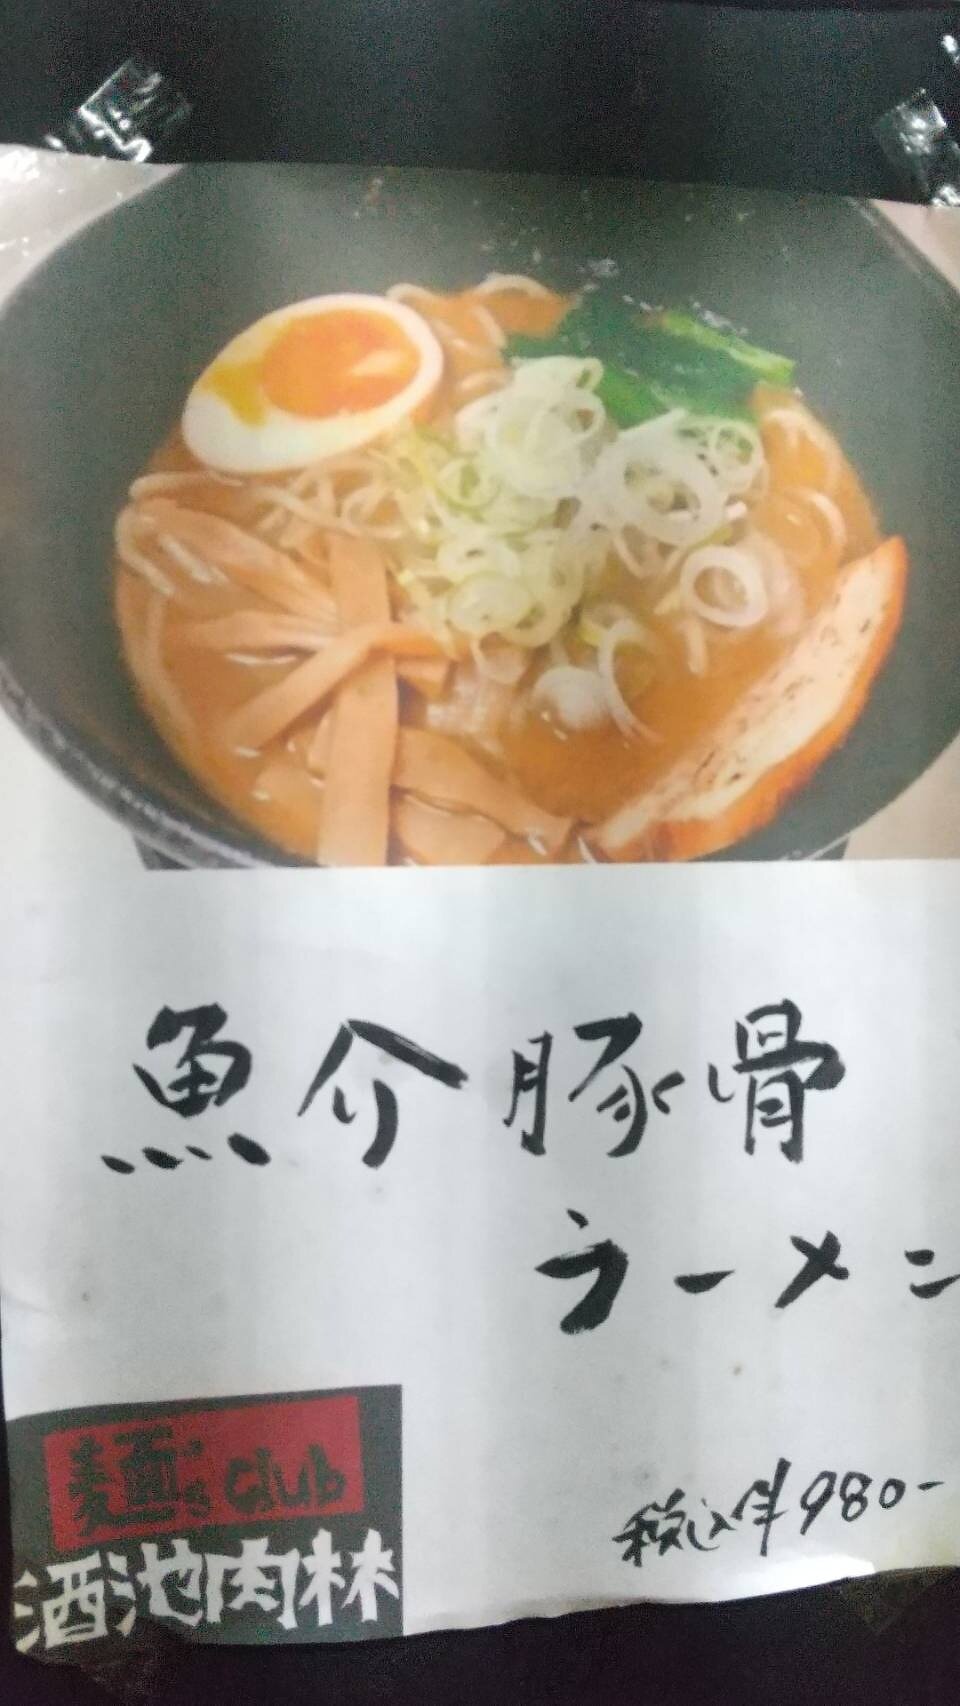 魚介豚骨
ラーメン
税込¥980-
麺's club
酒池肉林